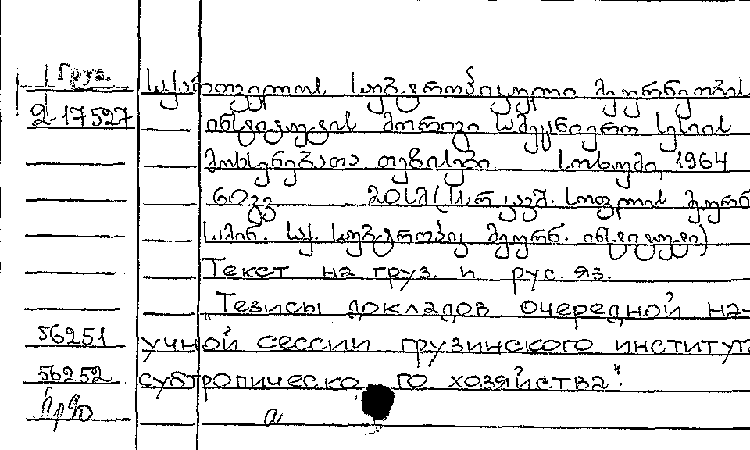 Груз.
2 17527
საქართველოს სუბტროპიკული მეურნეობის
ინსტიტუტის მორიგი სამეცნიერო სესიის
მოხსენებათა თეზისები სოხუმი, 1964
60გვ 20სმ (სსრ კავშ. სოფლის მეურნ
სამინ. საქ. სუბტროპიკ მეურნ. ინსტიტუტი)
Текст на груз. и рус. яз.
"Тезисы докладов очередной на-
56251 учной сессии грузинского институт
56252 субтропическо го хозяйства".
а